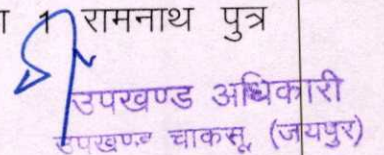 ा 1 रामनाथ पुत्र
उपखण्ड अधिकारी
उपखण्ड चाकसू, (जयपुर)